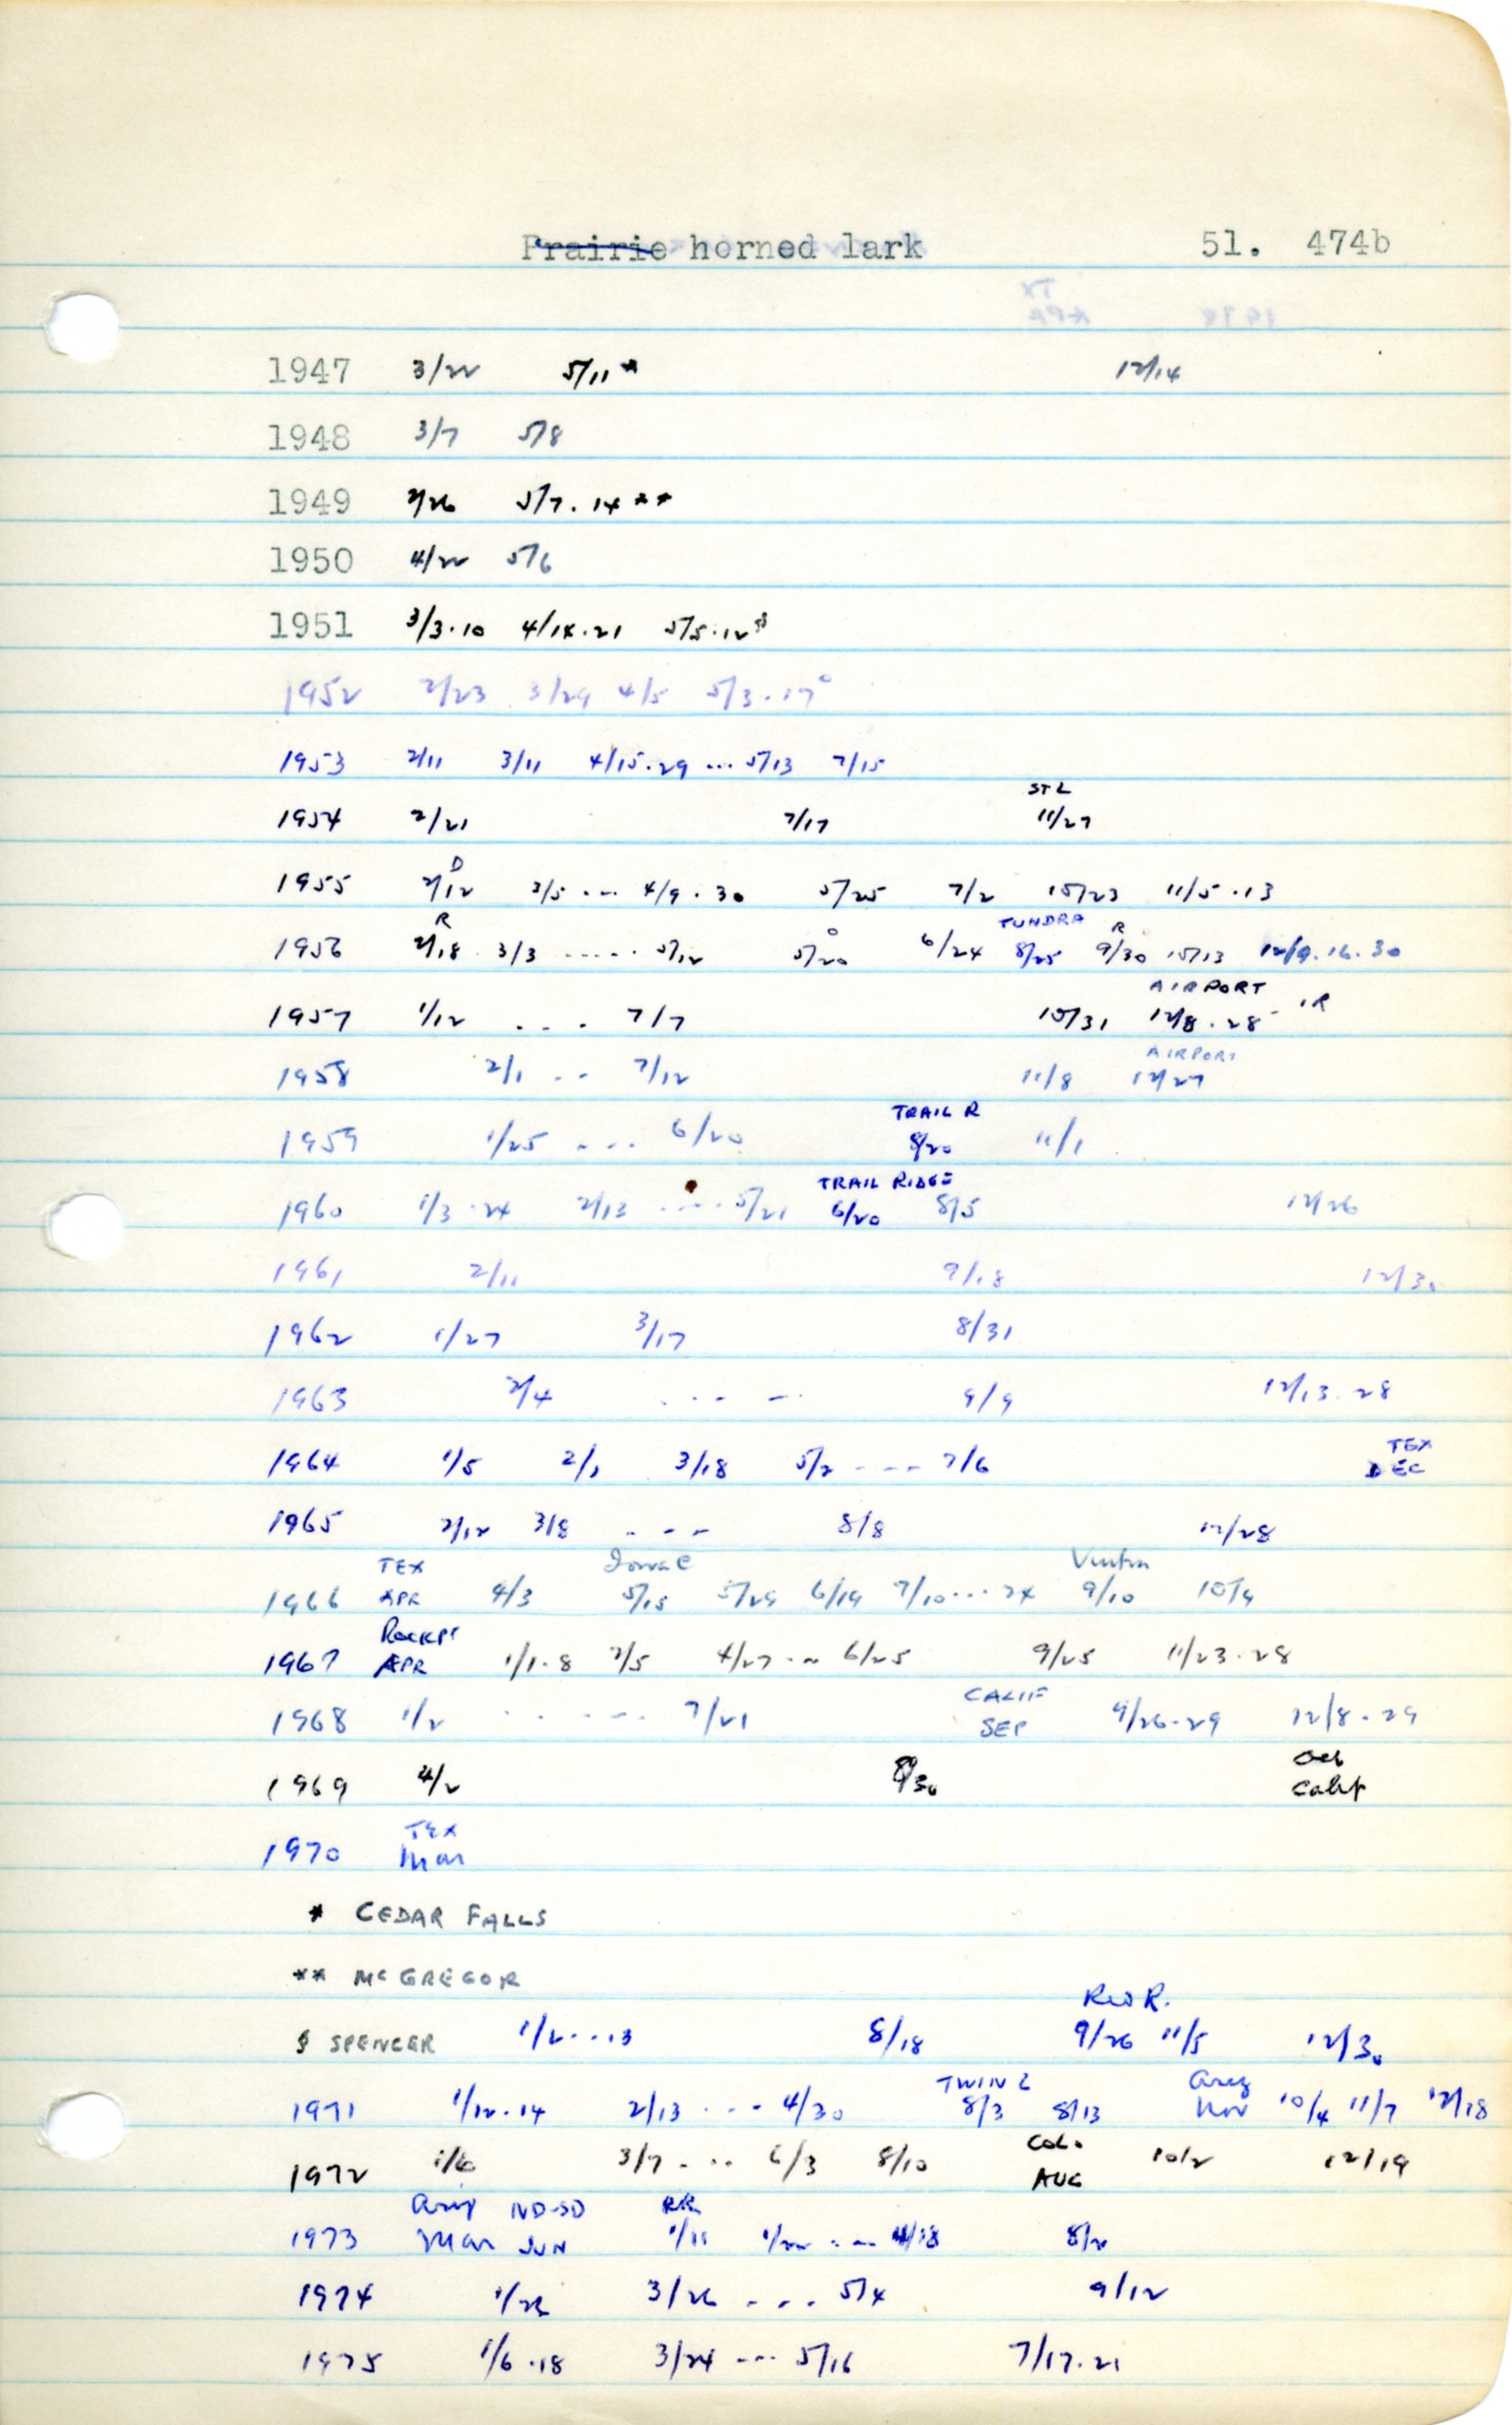 Prairie horned lark 51. 474b
1947 3/22 5/11 * 12/14
1948 3/7 5/8
1949 2/26 5/7. 14 **
1950 4/22 5/6
1951 3/3.10 4/14.21 5/5.12 §
1952 2/23 3/29 4/5 5/3.17 °
1953 2/11 3/11 4/15.29 ... 5/13 7/15
STL
1954 2/21 7/17 11/27
D
1955 2/12 3/5 ... 4/9.30 5/25 7/2 10/23 11/5.13
R O TUNDRA R
1956 2/18 3/3 ..... 5/12 5/20 6/24 8/25 9/30 10/13 12/9.16.30
AIRPORT
1957 1/12 ... 7/7 10/31 12/8.28 - 1R
AIRPORT
1958 2/1 .. 7/12 11/8 12/27
TRAIL R
1959 1/25 ... 6/20 8/20 11/1
TRAIL RIDGE
1960 1/3.24 2/13 .... 5/21 6/20 8/5 12/26
1961 2/11 9/18 12/30
1962 1/27 3/17 8/31
1963 2/4 ... - . 9/9 12/13.28
TEX
1964 1/5 2/1 3/18 5/2 --- 7/6 DEC
1965 2/12 3/8 . - - 8/8 12/28
TEX Iowa C Ventura
1966 APR 4/3 5/15 5/29 6/19 7/10 ... 24 9/10 10/9
Rockpt
1967 APR 1/1.8 2/5 4/27 .. 6/25 9/25 11/23.28
CALIF
1968 1/2 ..... 7/21 SEP 9/26.29 12/8.29
Oct
1969 4/2 8/30 Calif
TEX
1970 Mar
* CEDAR FALLS
** MCGREGOR
Red R.
§ SPENCER 1/2 ... 13 8/18 9/26 11/5 12/30
TWIN L Ariz
1971 1/12.14 2/13 ... 4/30 8/3 8/13 Nov 10/4 11/7 12/18
COLO
1972 1/6 3/7 ... 6/3 8/10 AUG 10/2 12/19
Ariz ND-SD RR
1973 Mar JUN 1/11 1/22 ... 4/18 8/2
1974 1/22 3/26 ... 5/4 9/12
1975 1/6.18 3/24 ... 5/16 7/17.21